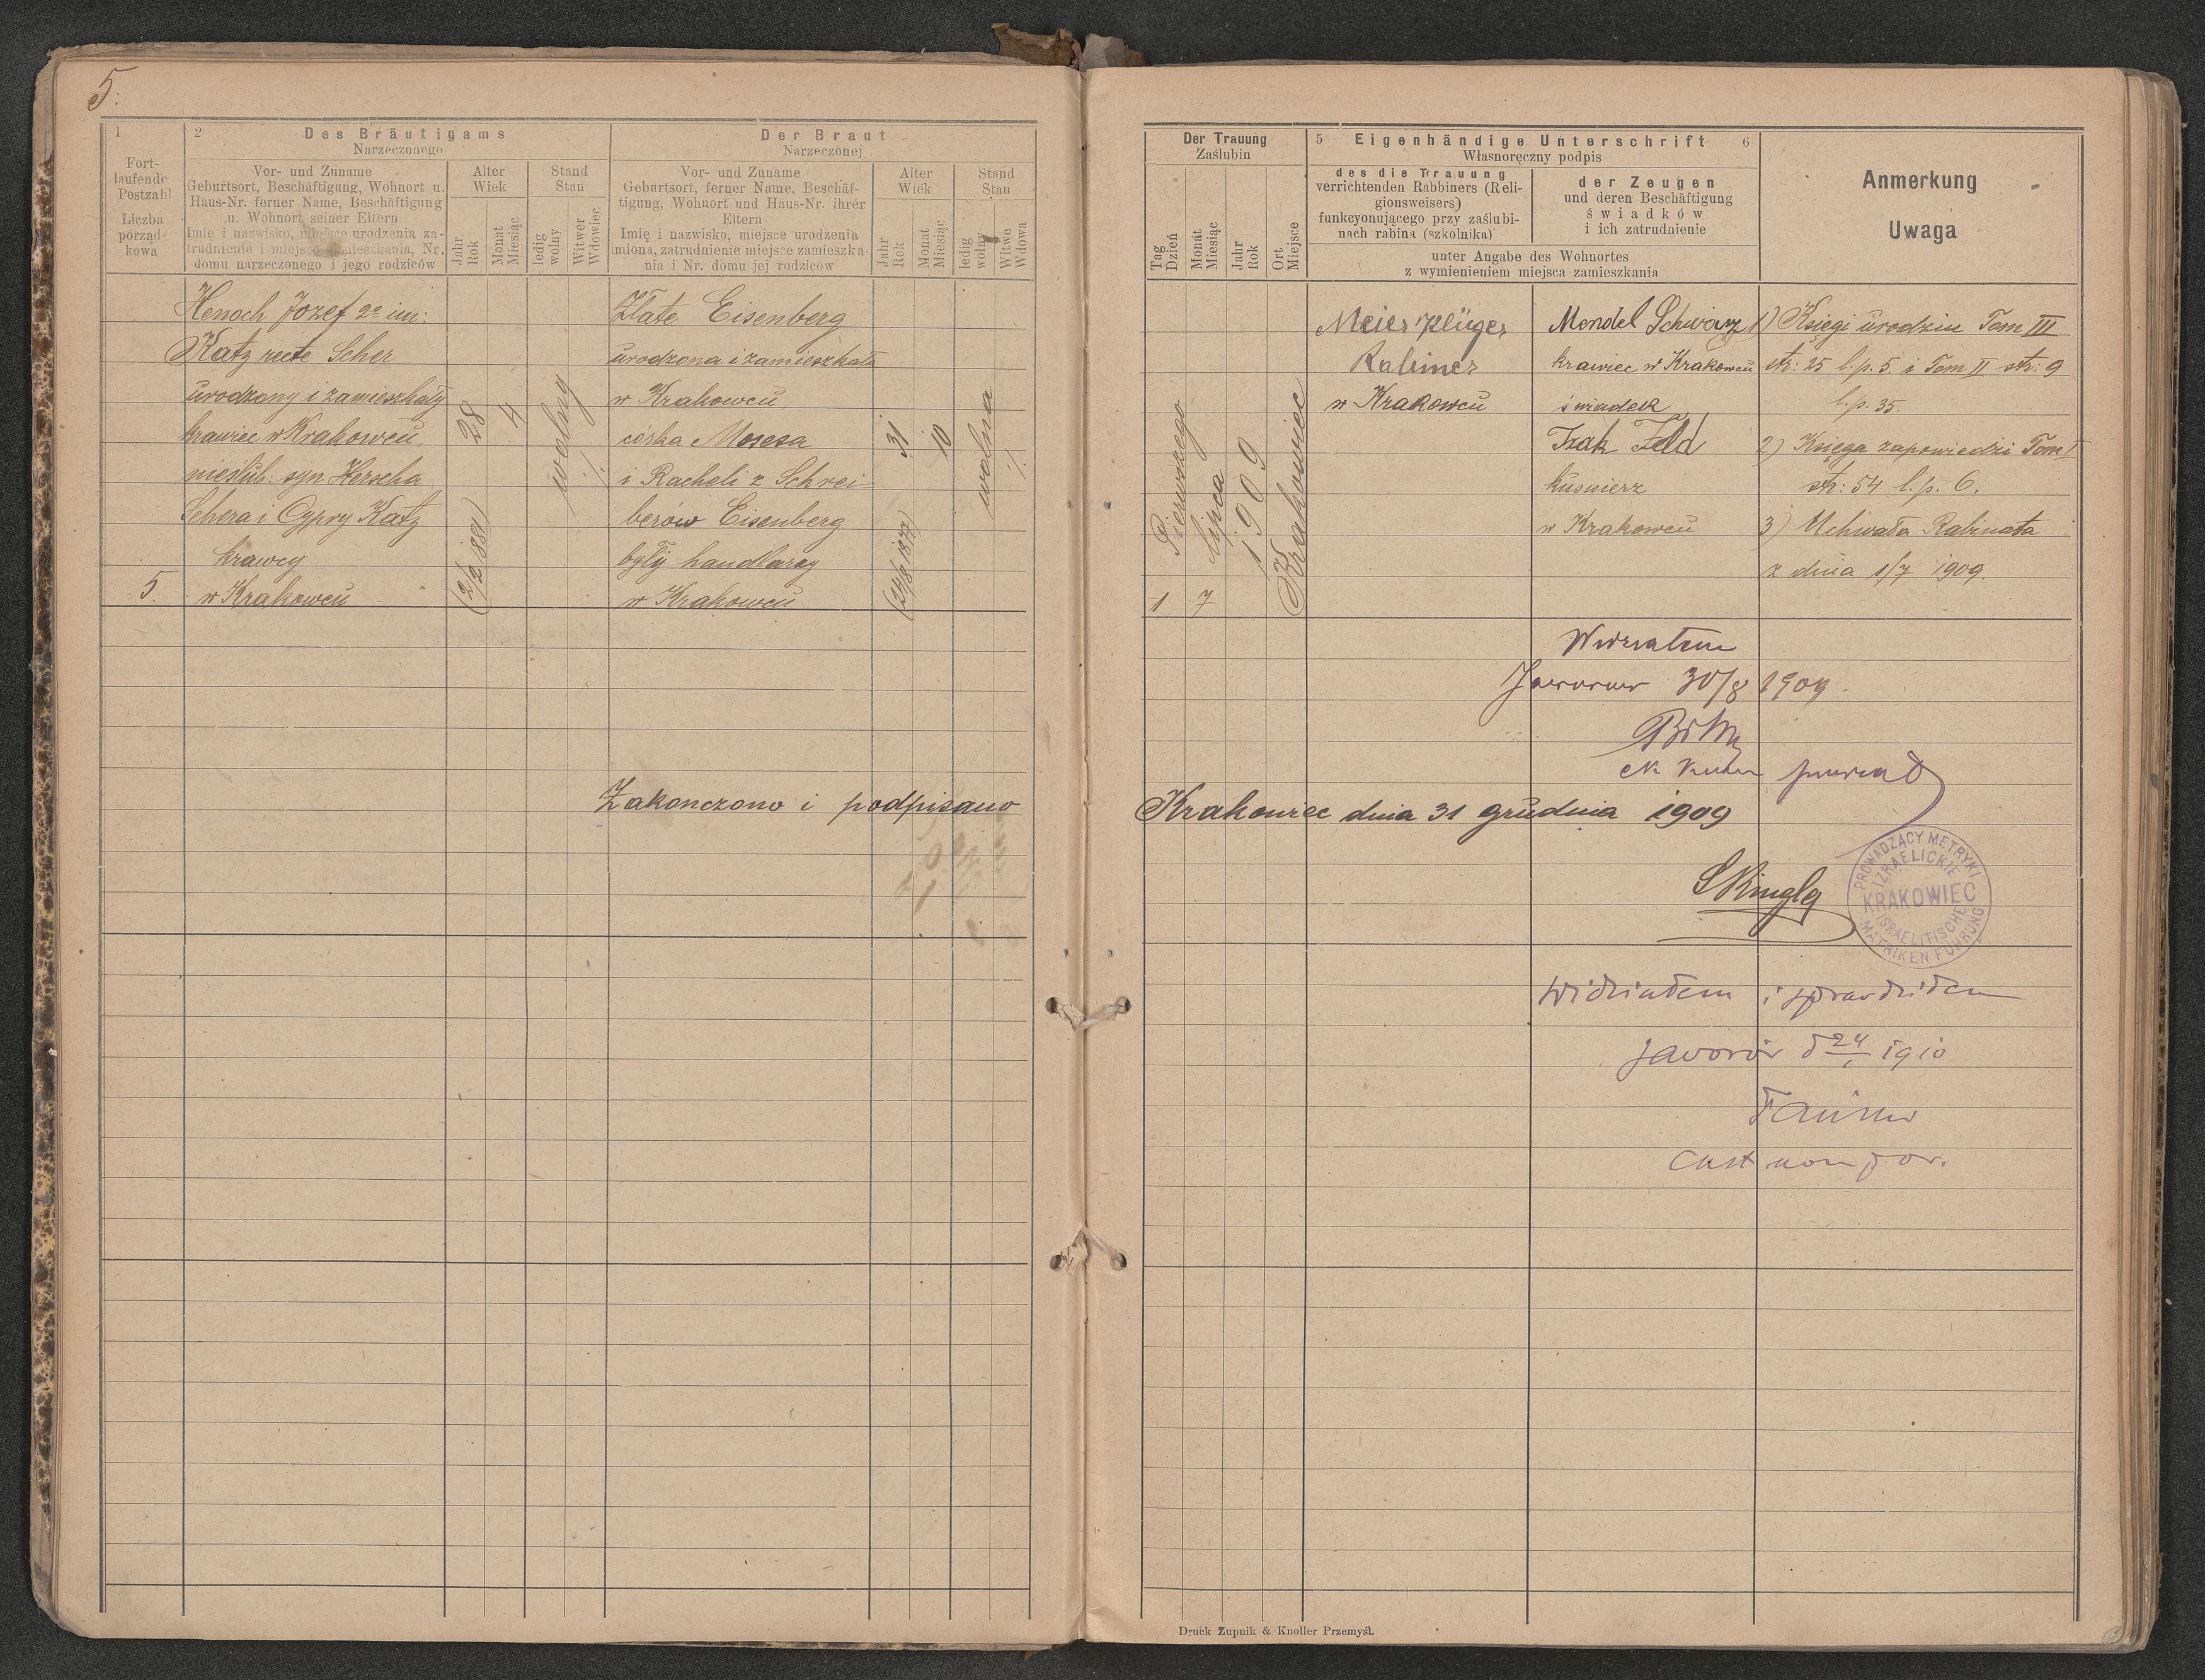 5.
1
Fort-
laufende
Postzahl
Liczba
porząd-
kowa
2
Des Bräutigams
Narzeczonego
Vor- und Zuname
Geburtsort, Beschäftigung, Wohnort u.
Haus-Nr. ferner Name, Beschäftigung
u. Wohnort seiner Eltern
Imię i nazwisko, miejsce urodzenia za-
trudnienie i miejsce zamieszkania, Nr.
domu narzeczonego i jego rodziców
Alter
Wiek
Jahr.
Rok
Monat
Miesiąc
Stand
Stan
ledig
wolny
Witwer
Widowiec
Der Braut
Narzeczónej
Vor- und Zuname
Geburtsort, ferner Name, Beschäf-
tigung, Wohnort und Haus-Nr. ihrer
Eltern
Imię i nazwisko, miejsce urodzenia
imiona, zatrudnienie miejsce zamieszka-
nia i Nr. domu jej rodziców
Alter
Wiek
Jahr
Rok
Monat
Miesiąc
Stand
Stan
ledig
wolny
Witwe
Wdowa
Henoch Jozef 2e im:
Katz recte Scher
urodzony i zamieszkały
krawiec w Krakowcu,
nieślub: syn Herscha
Schera i Cypry Katz
krawcy
5. w Krakowcu
28
(2/2 1881)
4
wolny
./.
Zlate Eisenberg
urodzona i zamieszkała
w Krakowcu
córka Mosesa
i Racheli z Schrei-
berów Eisenberg
byłej handlarzy
w Krakowcu
31
(24/8 1877)
10
wolna
./.
Zakonczono i podpisano
Der Trauung
Zaślubin
Tag
Dzień
Monat
Miesiąc
Jahr
Rok
Ort
Miejsce
5 Eigenhändige Unterschrift 6
Własnoręczny podpis
des die Trauung
verrichtenden Rabbiners (Reli-
gionsweisers)
funkcyonującego przy zaślubi-
nach rabina (szkolnika)
der Zeugen
und deren Beschäftigung
świadków
i ich zatrudnienie
unter Angabe des Wohnortes
z wymienieniem miejsca zamieszkania
Anmerkung
Uwaga
Pierwszego
1
lipca
7
1909
Krakowiec
Meier Klüger
Rabiner
w Krakowcu
Mendel Schwarz
krawiec w Krakowcu
świadek
Izak Feld
kusnierz
w Krakowcu
1) Księgi urodzin Tom III
str: 25 l.p. 5. i Tom II str: 9
l.p. 35.
2) Księga zapowiedzi Tom I
str: 54 l.p. 6.
3) Uchwała Rabinata
z dnia 1/7 1909.
Widziałem
Jaworów 30/8 1909.
Krakowiec dnia 31 grudnia 1909
PROWADZĄCY METRYKI
IZRAELICKIE
KRAKOWIEC
ISRAELITISCHE
MATRIKEN FÜHRUNG
Widziałem i sprawdziłem
Jaworów d 24/1 1910
Druck Żupnik & Knoller Przemyśl.